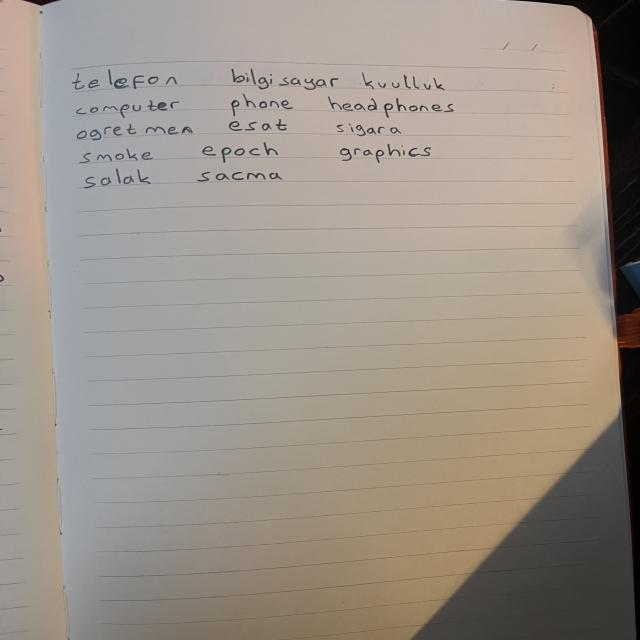 telefon bilgisayar kuulluk
computer phone headphones
ogretmen esat sigara
smoke epoch graphics
salak sacma